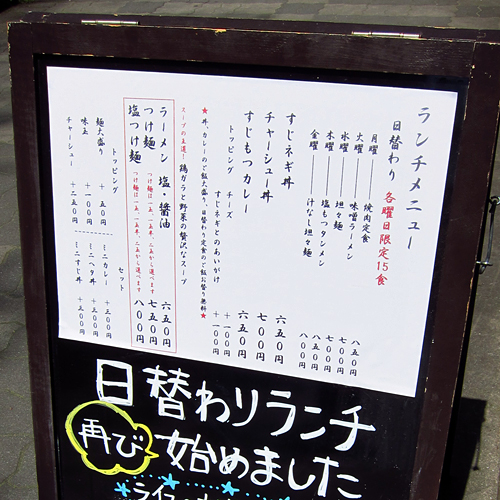 ランチメニュー
日替わり 各曜日限定15食
月曜 焼肉定食 八五〇円
火曜 味噌ラーメン 七〇〇円
水曜 坦々麺 七〇〇円
木曜 塩もつタンメン 八五〇円
金曜 汁なし坦々麺 八〇〇円
すじネギ丼 六五〇円
チャーシュー丼 七〇〇円
すじもつカレー 六五〇円
すじネギとのあいがけ +一〇〇円
トッピング チーズ +一〇〇円
★丼、カレーのご飯大盛り、日替わり定食のご飯お替り無料★
スープの主道!鶏ガラと野菜の贅沢なスープ
ラーメン 塩・醤油 六五〇円
つけ麺 七五〇円
塩つけ麺 八〇〇円
トッピング
麺大盛り +五〇円
味玉 +一〇〇円
チャーシュー +二〇〇円
セット
ミニカレー +三〇〇円
ミニヘタ丼 +三〇〇円
ミニすじ丼 +三〇〇円
日替わりランチ
再び 始めました